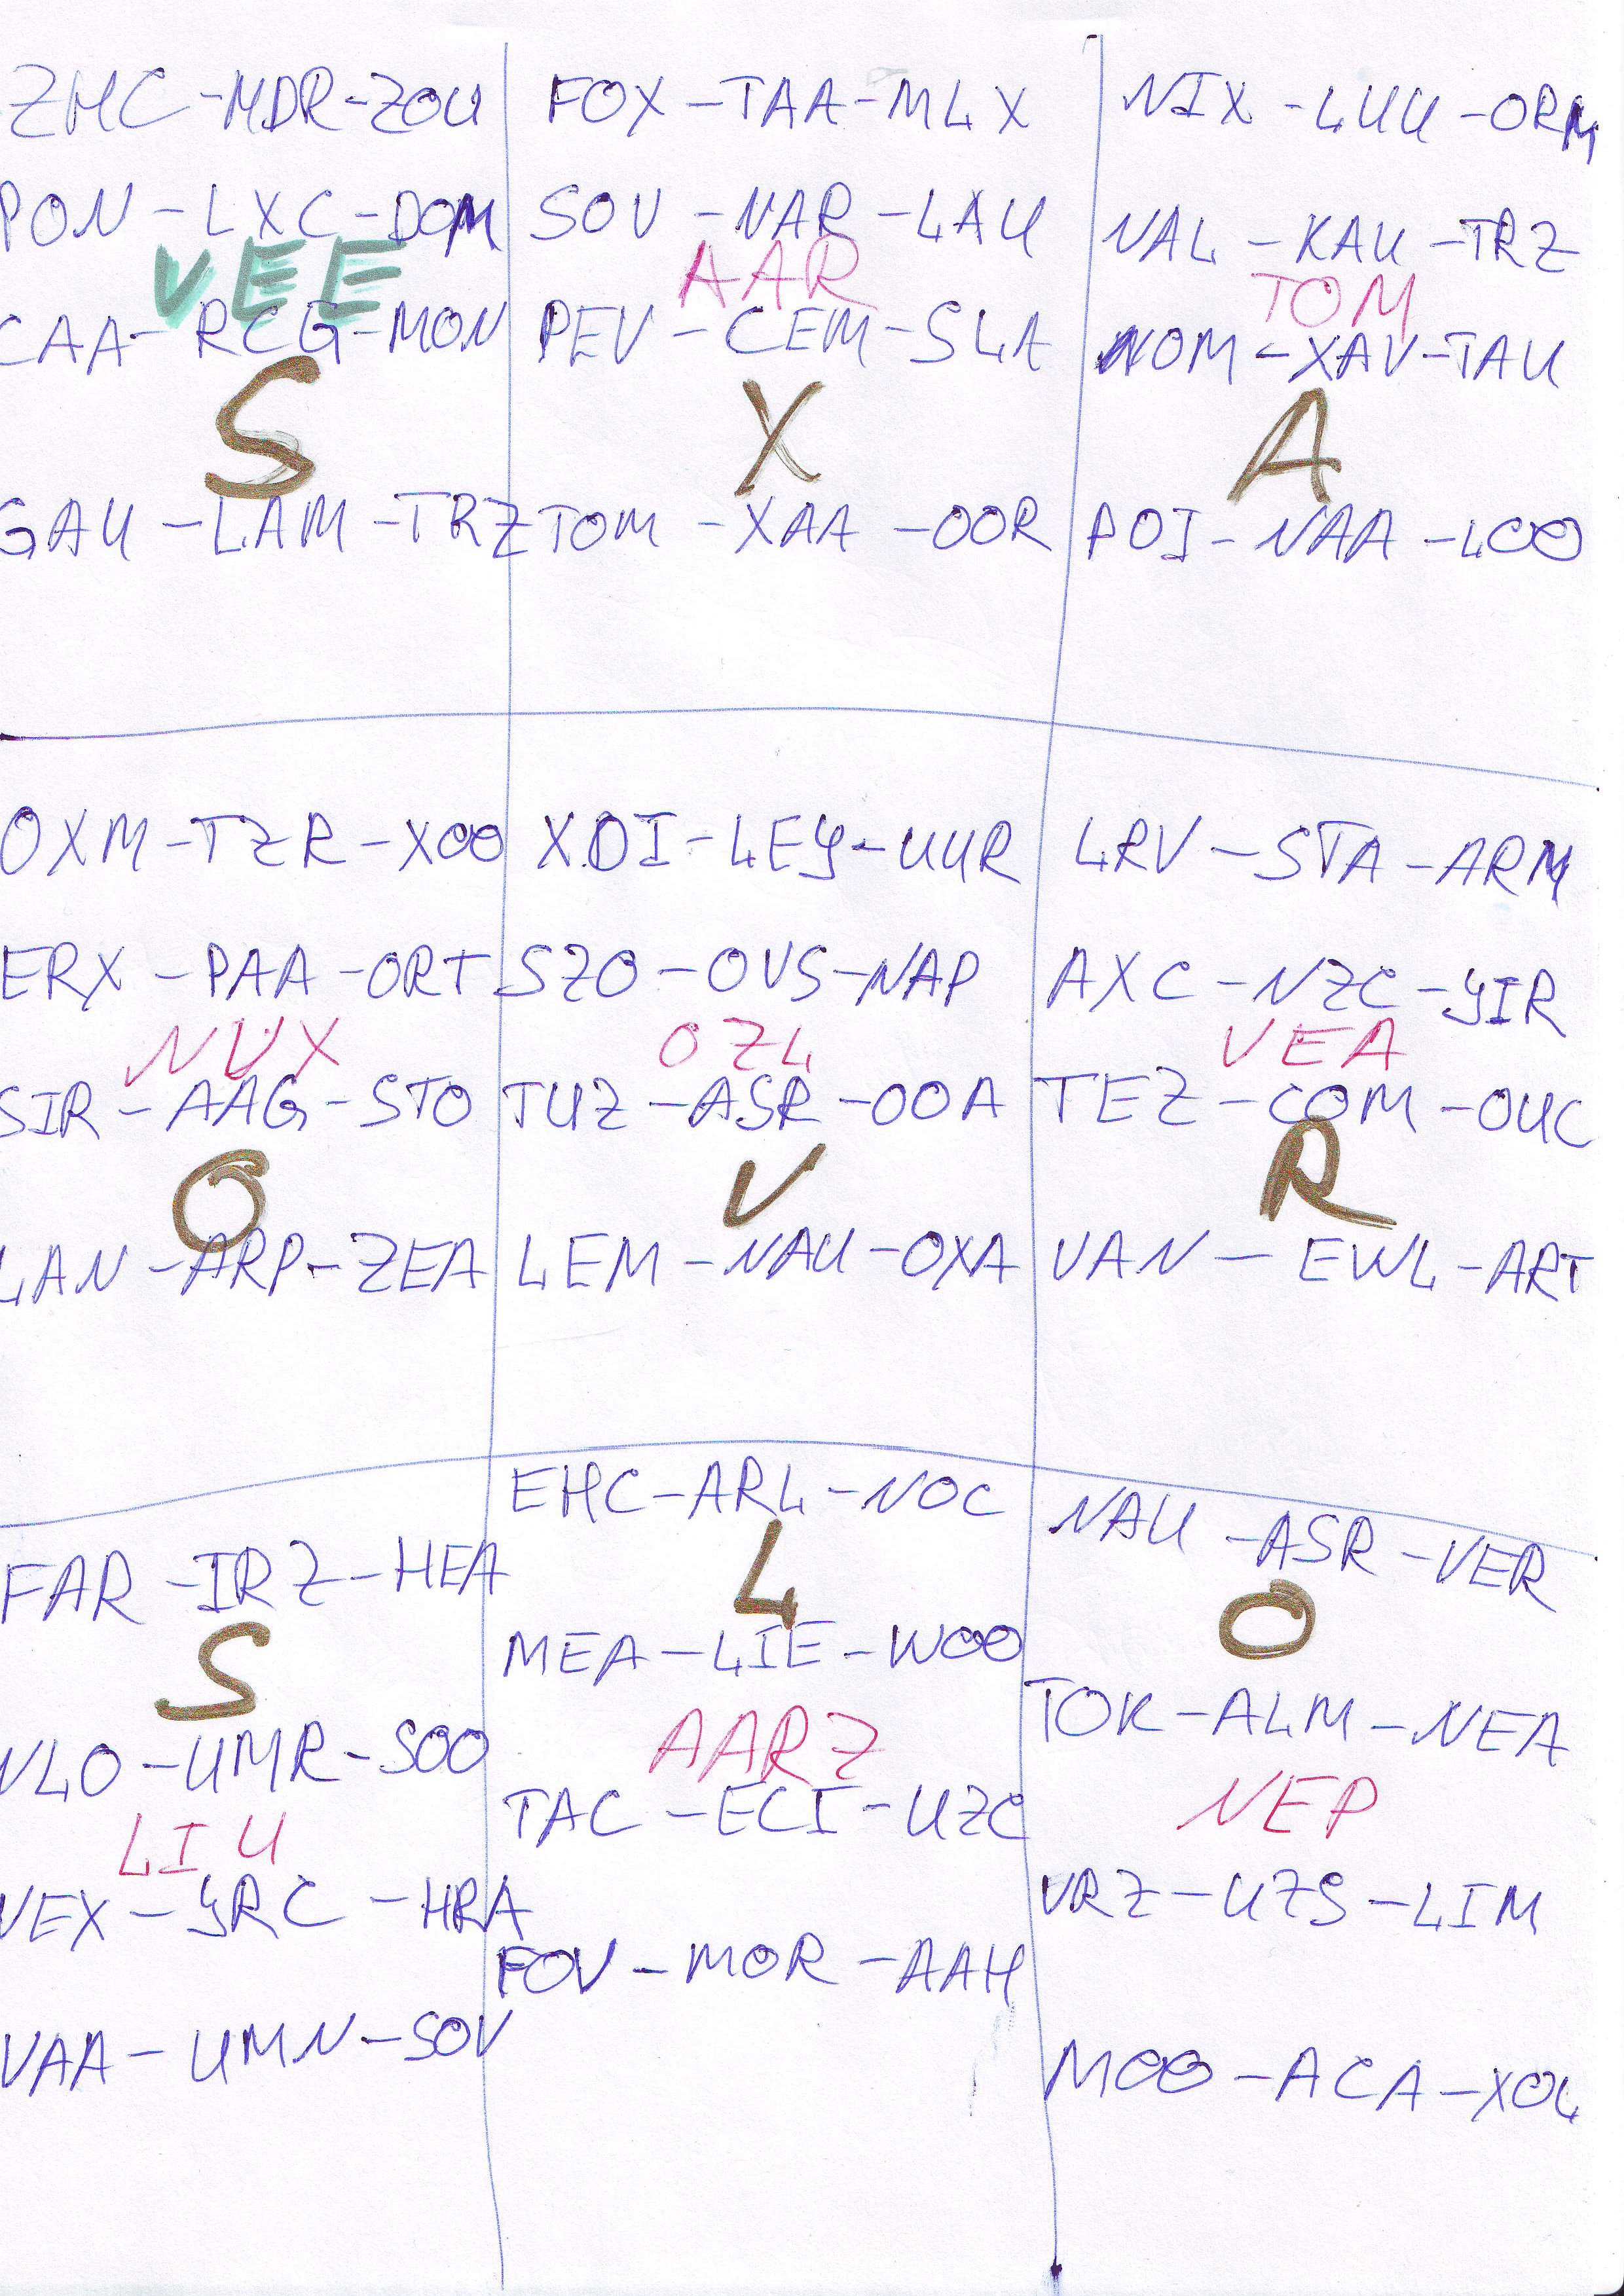 ZMC-MDR-ZOU
PON-LXC-DOM
VEE
CAA-RCG-MON
S
GAU-LAM-TRZ
FOX-TAA-MLX
SOV-NAR-LAU
AAR
PEV-CEM-SLA
X
TOM-XAA-OOR
NIX-LUU-ORM
NAL-KAU-TRZ
TOM
NOM-XAV-TAU
A
POI-NAA-LOO
OXM-TZR-XOO
ERX-PAA-ORT
NUX
SIR-AAG-STO
O
LAN-ARP-ZEA
XOI-LEY-UUR
SZO-OVS-NAP
OZL
TUZ-ASR-OOA
V
LEM-NAU-OXA
LRV-STA-ARM
AXC-NZC-YIR
VEA
TEZ-COM-OUC
R
VAN-EWL-ART
FAR-IRZ-HEA
S
VLO-UMR-SOO
LIU
VEX-YRC-HRA
VAA-UMN-SOV
EHC-ARL-NOC
L
MEA-LIE-WOO
AARZ
TAC-ECI-UZC
FOV-MOR-AAH
NAU-ASR-VER
O
TOK-ALM-NEA
NEP
VRZ-UZS-LIM
MOO-ACA-XOL